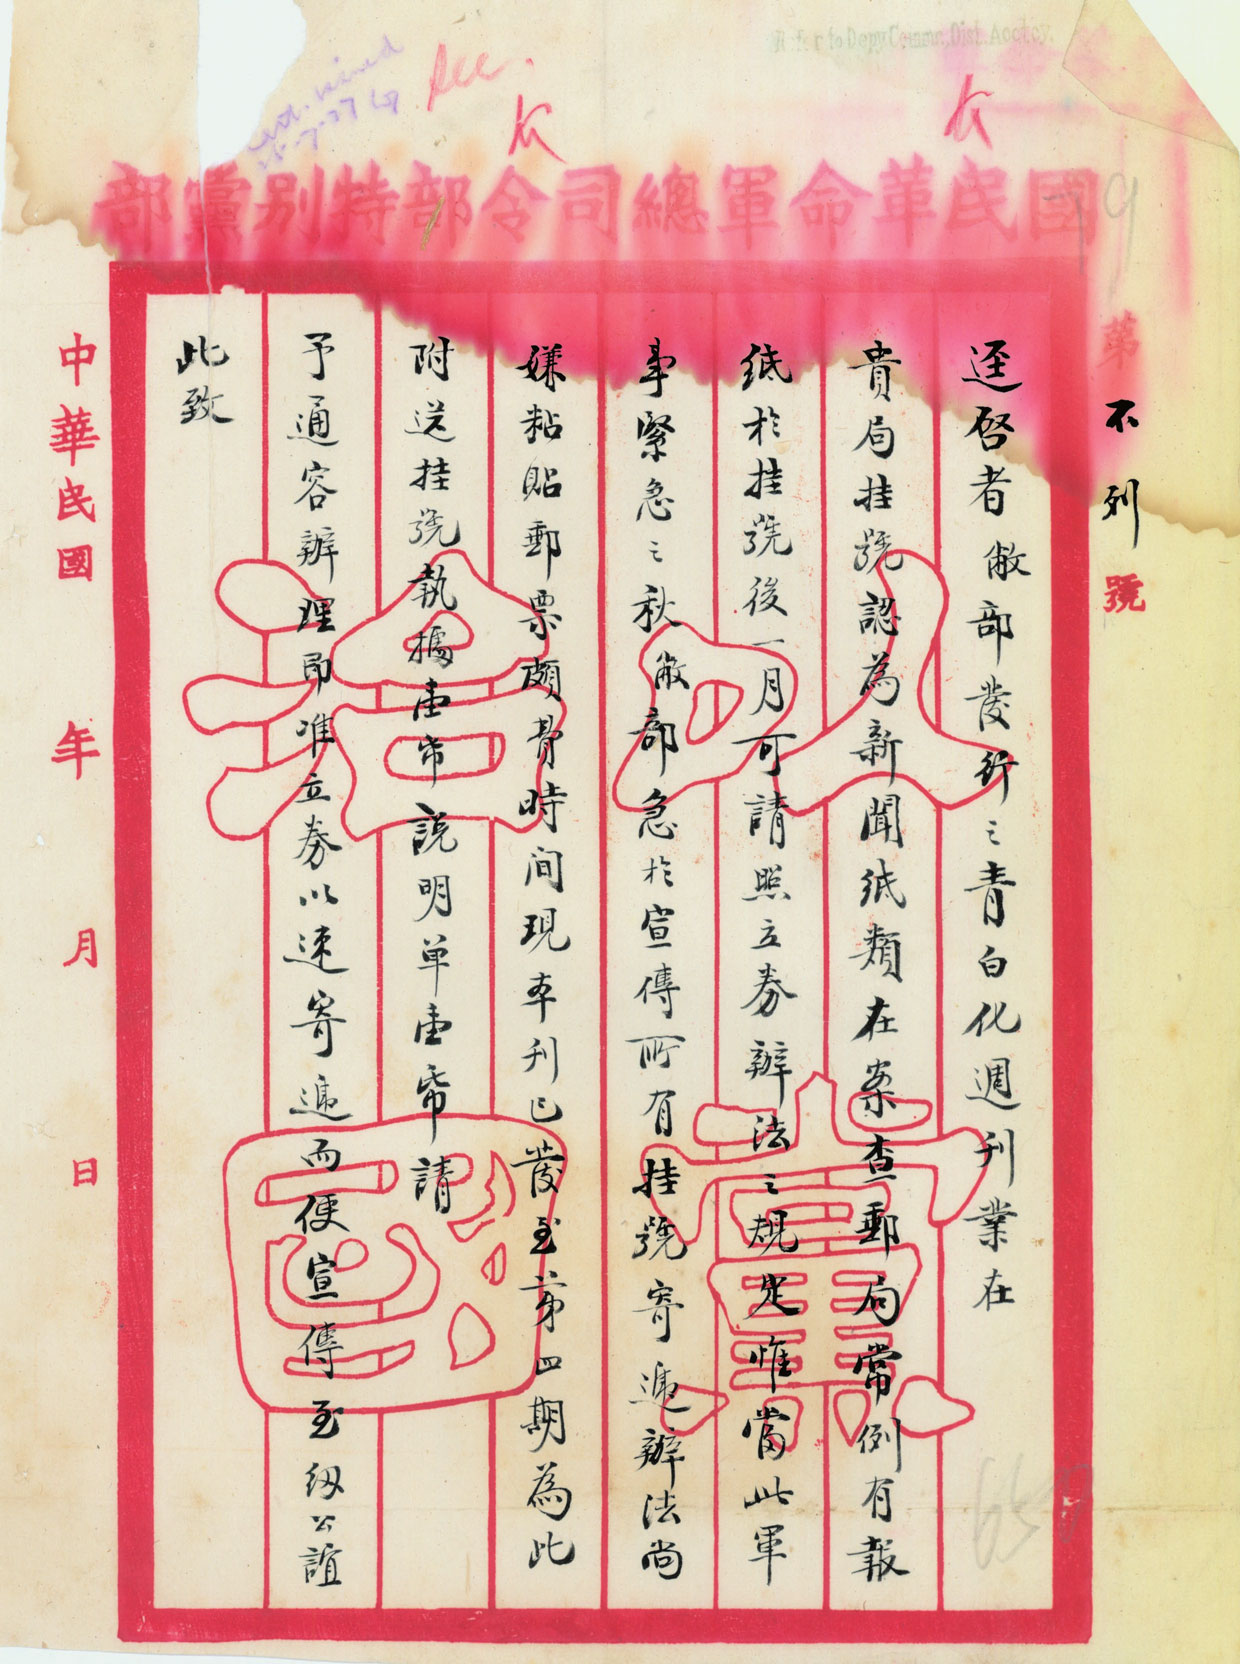 Refer to Depy Commr, Dist. Acctcy.
國民革命軍總司令部特別黨部
79
第不列號
逕啓者敝部發行之青白化週刊業在
貴局挂號認為新聞紙類在案查郵局常例有報
紙於挂號後一月可請照立券辦法之規定惟當此軍
事緊急之秋敝部急於宣傳所有挂號寄遞辦法尚
嫌粘貼郵票頗費時間現本刊已發至第四期為此
附送挂號執據壹帋說明單壹帋請
予通容辦理即准立券以速寄遞而便宣傳至紉公誼
此致
中華民國 年 月 日
以黨治國